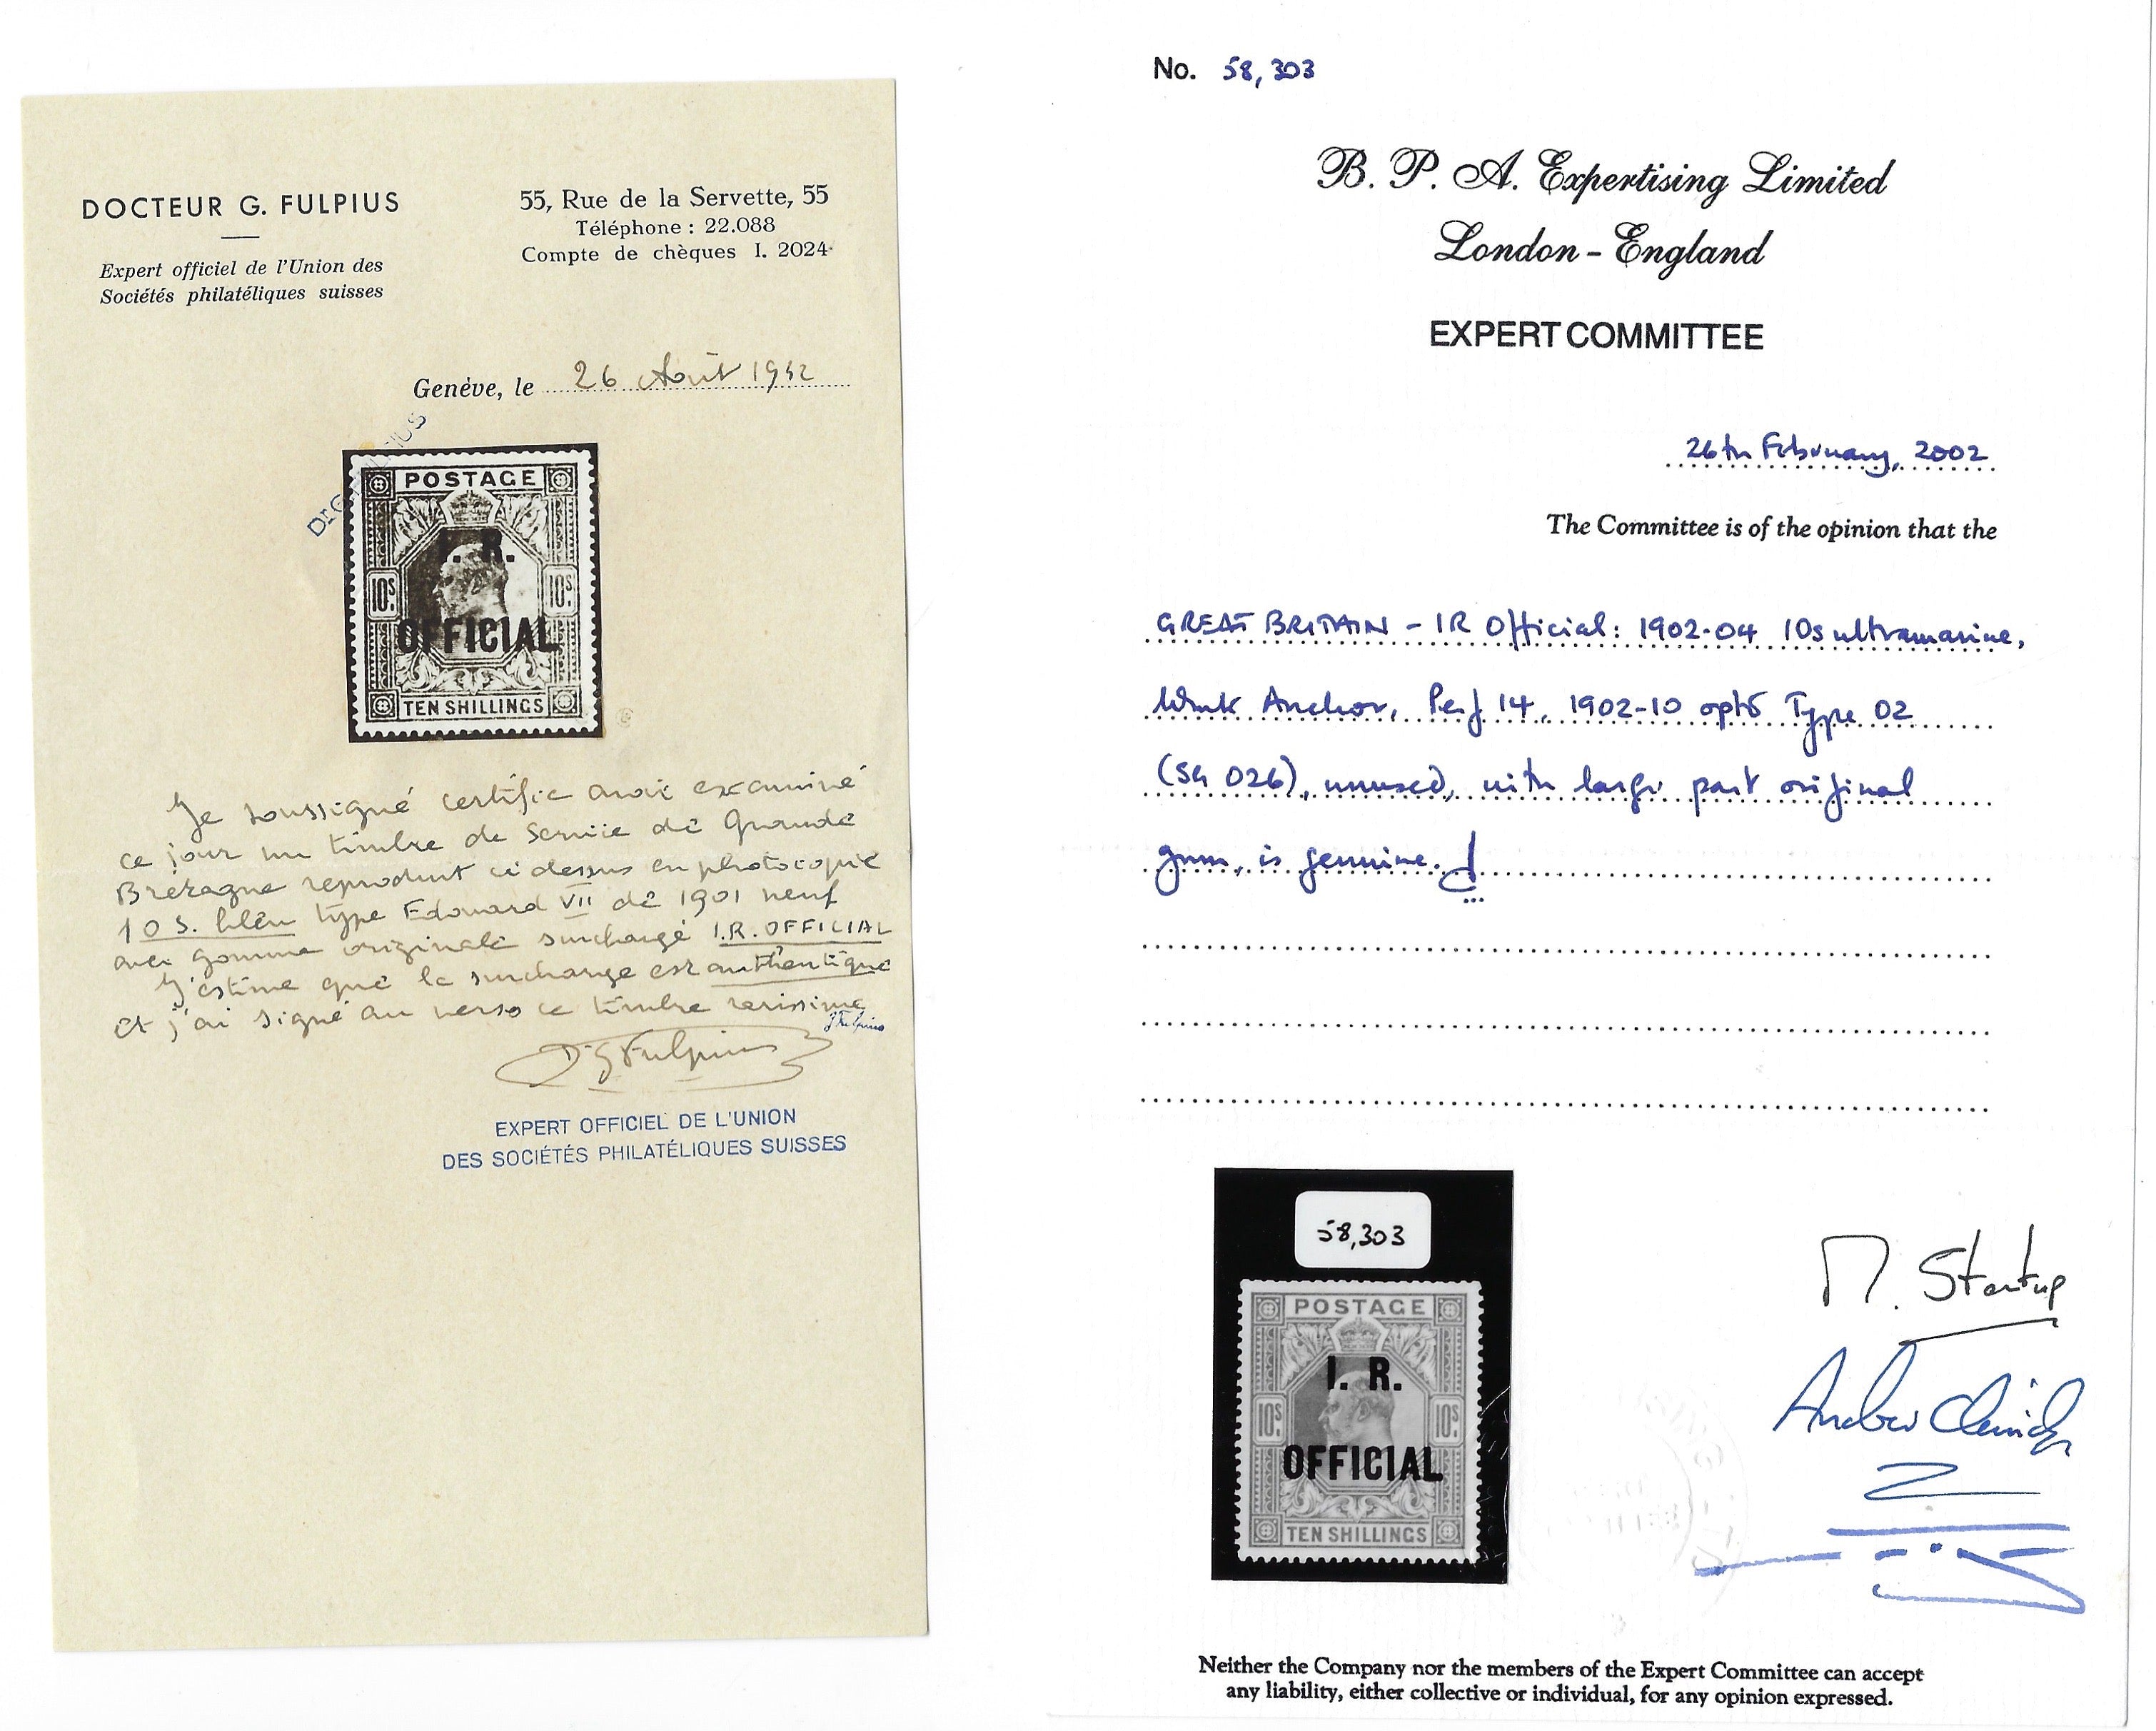 DOCTEUR G. FULPIUS
Expert officiel de l'Union des
Sociétés philatéliques suisses
55, Rue de la Servette, 55
Téléphone : 22.088
Compte de chèques I. 2024
Genève, le 26 Août 1942
POSTAGE
I. R.
10s. 10s.
OFFICIAL
TEN SHILLINGS
Je soussigné certifie avoir examiné
ce jour un timbre de Service de Grande
Bretagne reproduit ci dessus en photocopie
10 S. bleu type Edouard VII de 1901 neuf
avec gomme originale surchargé I.R. OFFICIAL
J'estime que la surcharge est authentique
et j'ai signé au verso ce timbre rarissime
G Fulpius
Dr G Fulpius
EXPERT OFFICIEL DE L'UNION
DES SOCIÉTÉS PHILATÉLIQUES SUISSES
No. 58,303
B. P. A. Expertising Limited
London - England
EXPERT COMMITTEE
26th February, 2002
The Committee is of the opinion that the
GREAT BRITAIN - IR Official: 1902-04 10s ultramarine,
Wmk Anchor, Perf 14, 1902-10 optd Type O2
(SG O26), unused, with large part original
gum, is genuine.
58,303
POSTAGE
I. R.
10s. 10s.
OFFICIAL
TEN SHILLINGS
M. Startup
Neither the Company nor the members of the Expert Committee can accept
any liability, either collective or individual, for any opinion expressed.